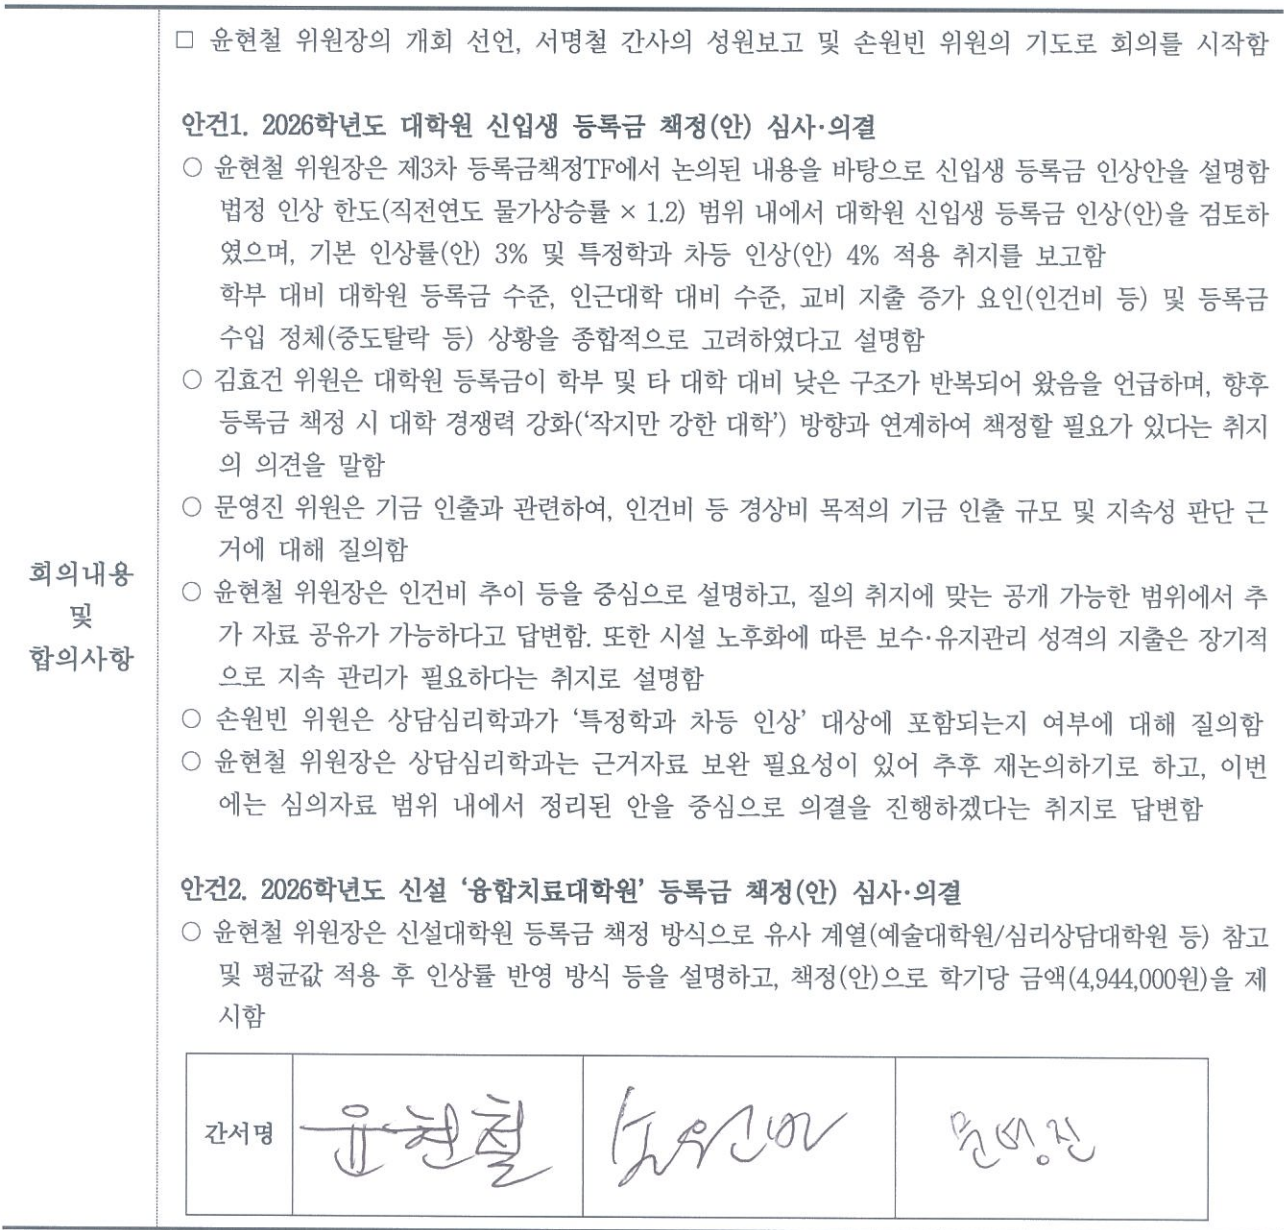 □ 윤현철 위원장의 개회 선언, 서명철 간사의 성원보고 및 손원빈 위원의 기도로 회의를 시작함
안건1. 2026학년도 대학원 신입생 등록금 책정(안) 심사·의결
○ 윤현철 위원장은 제3차 등록금책정TF에서 논의된 내용을 바탕으로 신입생 등록금 인상안을 설명함
법정 인상 한도(직전연도 물가상승률 × 1.2) 범위 내에서 대학원 신입생 등록금 인상(안)을 검토하
였으며, 기본 인상률(안) 3% 및 특정학과 차등 인상(안) 4% 적용 취지를 보고함
학부 대비 대학원 등록금 수준, 인근대학 대비 수준, 교비 지출 증가 요인(인건비 등) 및 등록금
수입 정체(중도탈락 등) 상황을 종합적으로 고려하였다고 설명함
○ 김효건 위원은 대학원 등록금이 학부 및 타 대학 대비 낮은 구조가 반복되어 왔음을 언급하며, 향후
등록금 책정 시 대학 경쟁력 강화(‘작지만 강한 대학’) 방향과 연계하여 책정할 필요가 있다는 취지
의 의견을 말함
○ 문영진 위원은 기금 인출과 관련하여, 인건비 등 경상비 목적의 기금 인출 규모 및 지속성 판단 근
거에 대해 질의함
회의내용
및
합의사항
○ 윤현철 위원장은 인건비 추이 등을 중심으로 설명하고, 질의 취지에 맞는 공개 가능한 범위에서 추
가 자료 공유가 가능하다고 답변함. 또한 시설 노후화에 따른 보수·유지관리 성격의 지출은 장기적
으로 지속 관리가 필요하다는 취지로 설명함
○ 손원빈 위원은 상담심리학과가 ‘특정학과 차등 인상’ 대상에 포함되는지 여부에 대해 질의함
○ 윤현철 위원장은 상담심리학과는 근거자료 보완 필요성이 있어 추후 재논의하기로 하고, 이번
에는 심의자료 범위 내에서 정리된 안을 중심으로 의결을 진행하겠다는 취지로 답변함
안건2. 2026학년도 신설 ‘융합치료대학원’ 등록금 책정(안) 심사·의결
○ 윤현철 위원장은 신설대학원 등록금 책정 방식으로 유사 계열(예술대학원/심리상담대학원 등) 참고
및 평균값 적용 후 인상률 반영 방식 등을 설명하고, 책정(안)으로 학기당 금액(4,944,000원)을 제
시함
간서명 윤현철 손원빈 문영진